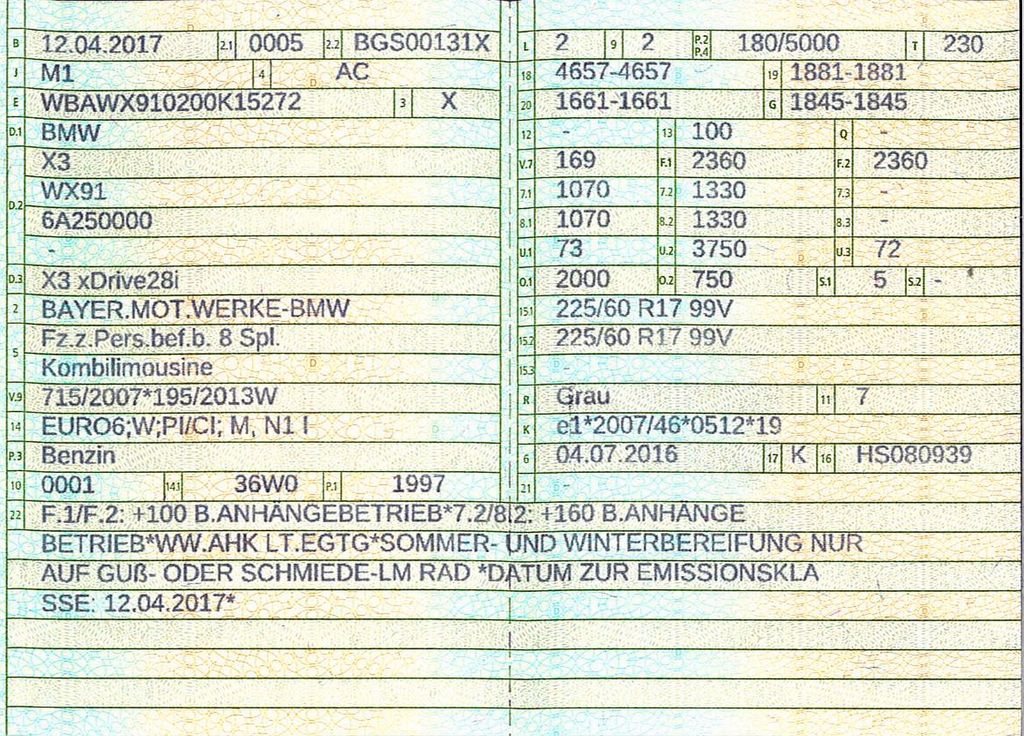 B 12.04.2017 2.1 0005 2.2 BGS00131X
J M1 4 AC
E WBAWX910200K15272 3 X
D.1 BMW
X3
D.2 WX91
6A250000
-
D.3 X3 xDrive28i
2 BAYER.MOT.WERKE-BMW
5 Fz.z.Pers.bef.b. 8 Spl.
Kombilimousine
V.9 715/2007*195/2013W
14 EURO6;W;PI/CI; M, N1 I
P.3 Benzin
10 0001 14.1 36W0 P.1 1997
L 2 9 2 P.2 P.4 180/5000 T 230
18 4657-4657 19 1881-1881
20 1661-1661 G 1845-1845
12 - 13 100 Q -
V.7 169 F.1 2360 F.2 2360
7.1 1070 7.2 1330 7.3 -
8.1 1070 8.2 1330 8.3 -
U.1 73 U.2 3750 U.3 72
O.1 2000 O.2 750 S.1 5 S.2 -
15.1 225/60 R17 99V
15.2 225/60 R17 99V
15.3
R Grau 11 7
K e1*2007/46*0512*19
6 04.07.2016 17 K 16 HS080939
21 -
22 F.1/F.2: +100 B.ANHÄNGEBETRIEB*7.2/8.2: +160 B.ANHÄNGE
BETRIEB*WW.AHK LT.EGTG*SOMMER- UND WINTERBEREIFUNG NUR
AUF GUß- ODER SCHMIEDE-LM RAD *DATUM ZUR EMISSIONSKLA
SSE: 12.04.2017*